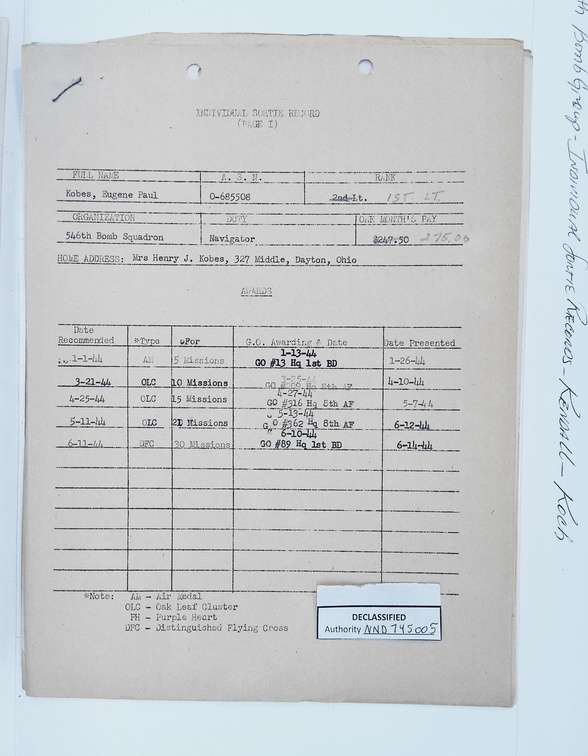 INDIVIDUAL SORTIE RECORD
(PAGE I)
FULL NAME A. S. N. RANK
Kobes, Eugene Paul O-685508 2nd Lt. 1ST LT.
ORGANIZATION DUTY ONE MONTH'S PAY
546th Bomb Squadron Navigator $247.50 275.00
HOME ADDRESS: Mrs Henry J. Kobes, 327 Middle, Dayton, Ohio
AWARDS
Date
Recommended *Type *For G.O. Awarding & Date Date Presented
1-13-44
1-1-44 AM 5 Missions GO #13 Hq 1st BD 1-26-44
3-21-44 OLC 10 Missions Hq 8th AF 4-10-44
4-27-44
4-25-44 OLC 15 Missions GO #316 Hq 8th AF 5-7-44
5-13-44
5-11-44 OLC 21 Missions GO #362 Hq 8th AF 6-12-44
6-10-44
6-11-44 DFC 30 Missions GO #89 Hq 1st BD 6-14-44
*Note: AM - Air Medal
OLC - Oak Leaf Cluster
PH - Purple Heart
DFC - Distinguished Flying Cross
DECLASSIFIED
Authority NND 745005
th Bomb Group - Individual Sortie Records - Kendall - Koch